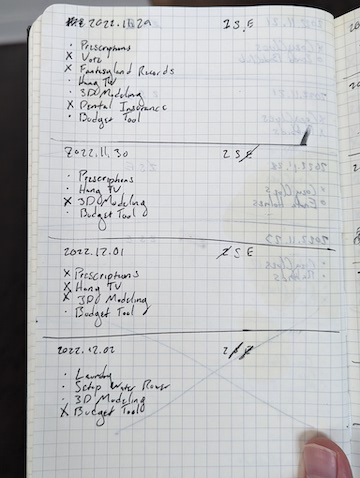 2022.11.29 I S E
· Prescriptions
x Vote
x Fantasyland Records
· Hang TV
· 3D Modeling
x Dental Insurance
· Budget Tool
2022.11.30 2 S E
· Prescriptions
· Hang TV
x 3D Modeling
· Budget Tool
2022.12.01 2 S E
x Prescriptions
x Hang TV
x 3D Modeling
· Budget Tool
2022.12.02 2
· Laundry
· Setup Water
· 3D Modeling
x Budget Tool